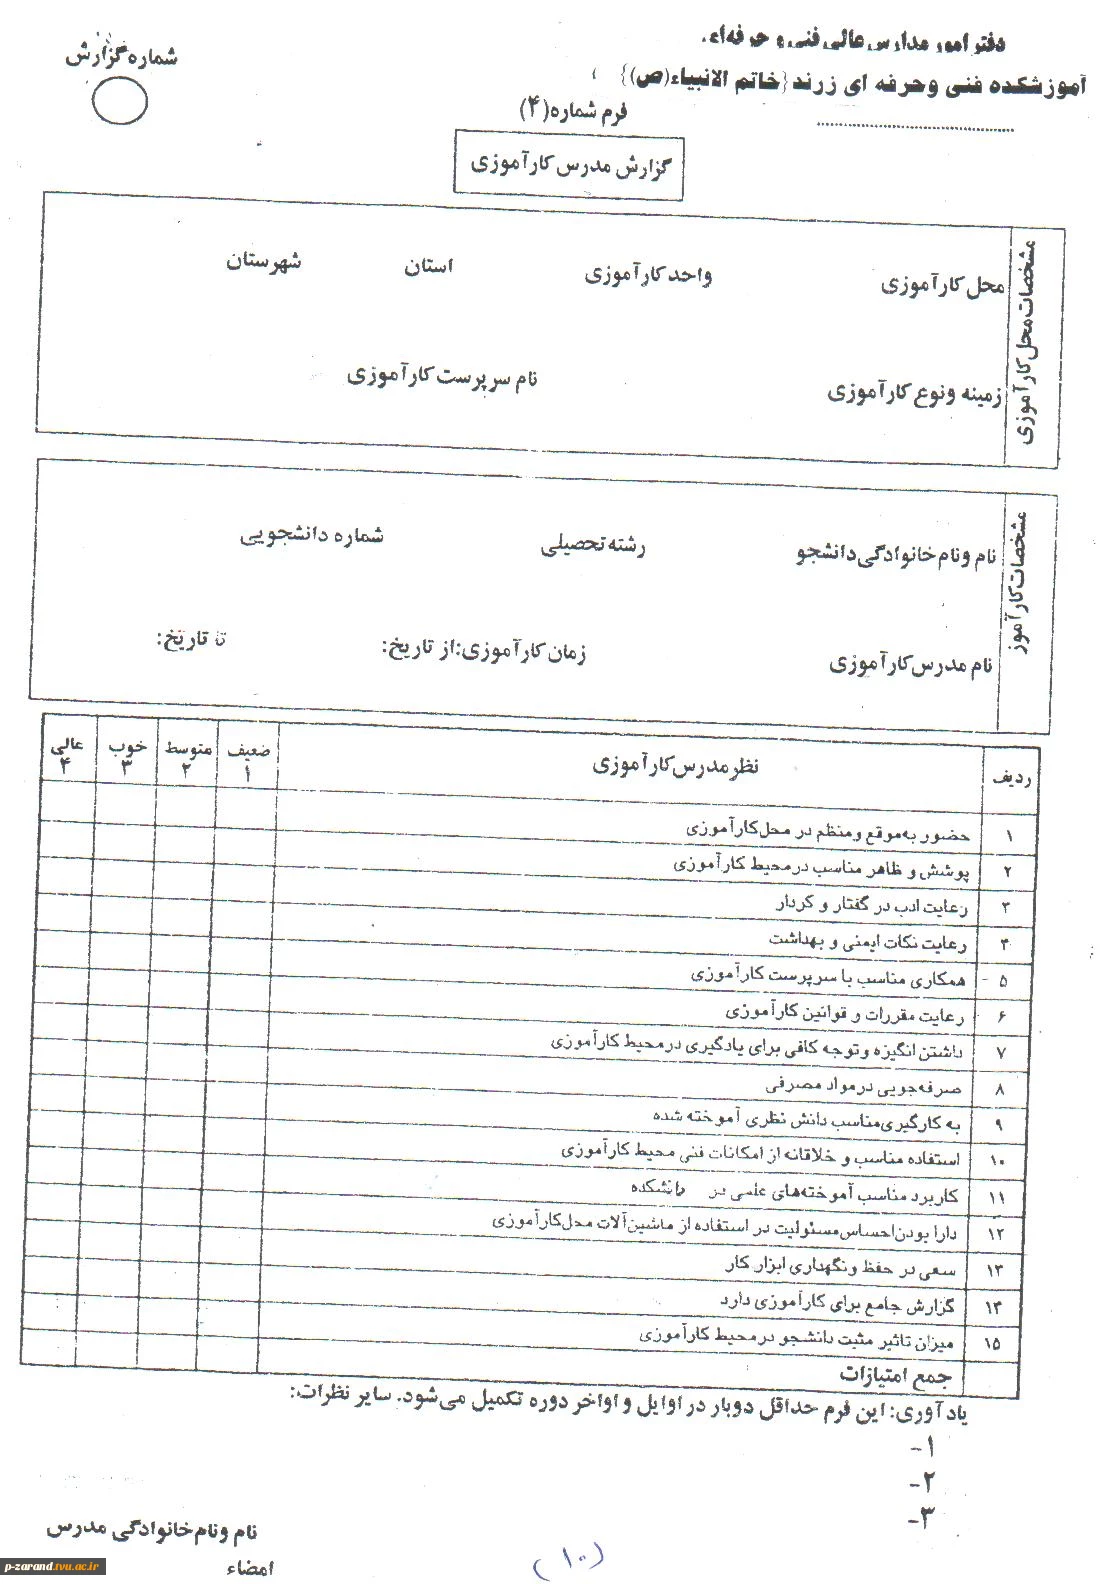 دفتر امور مدارس عالی فنی و حرفه‌ای
شماره گزارش
آموزشکده فنی وحرفه ای زرند {خاتم الانبیاء(ص)}
فرم شماره(۴)
گزارش مدرس کارآموزی
مشخصات محل کارآموزی
محل کارآموزی واحد کارآموزی استان شهرستان
زمینه ونوع کارآموزی نام سرپرست کارآموزی
مشخصات کارآموز
نام ونام خانوادگی دانشجو رشته تحصیلی شماره دانشجویی
نام مدرس کارآموزی زمان کارآموزی: از تاریخ: تا تاریخ:
ردیف نظر مدرس کارآموزی ضعیف ۱ متوسط ۲ خوب ۳ عالی ۴
۱ حضور به‌موقع ومنظم در محل کارآموزی
۲ پوشش و ظاهر مناسب درمحیط کارآموزی
۳ رعایت ادب در گفتار و کردار
۴ رعایت نکات ایمنی و بهداشت
۵ همکاری مناسب با سرپرست کارآموزی
۶ رعایت مقررات و قوانین کارآموزی
۷ داشتن انگیزه وتوجه کافی برای یادگیری درمحیط کارآموزی
۸ صرفه‌جویی درمواد مصرفی
۹ به کارگیری‌مناسب دانش نظری آموخته شده
۱۰ استفاده مناسب و خلاقانه از امکانات فنی محیط کارآموزی
۱۱ کاربرد مناسب آموخته‌های علمی در دانشکده
۱۲ دارا بودن‌احساس‌مسئولیت در استفاده از ماشین‌آلات محل‌کارآموزی
۱۳ سعی در حفظ ونگهداری ابزار کار
۱۴ گزارش جامع برای کارآموزی دارد
۱۵ میزان تاثیر مثبت دانشجو درمحیط کارآموزی
جمع امتیازات
یادآوری: این فرم حداقل دوبار در اوایل و اواخر دوره تکمیل می‌شود. سایر نظرات:
۱-
۲-
۳-
نام ونام خانوادگی مدرس
امضاء
(۱۰)
p-zarand.tvu.ac.ir